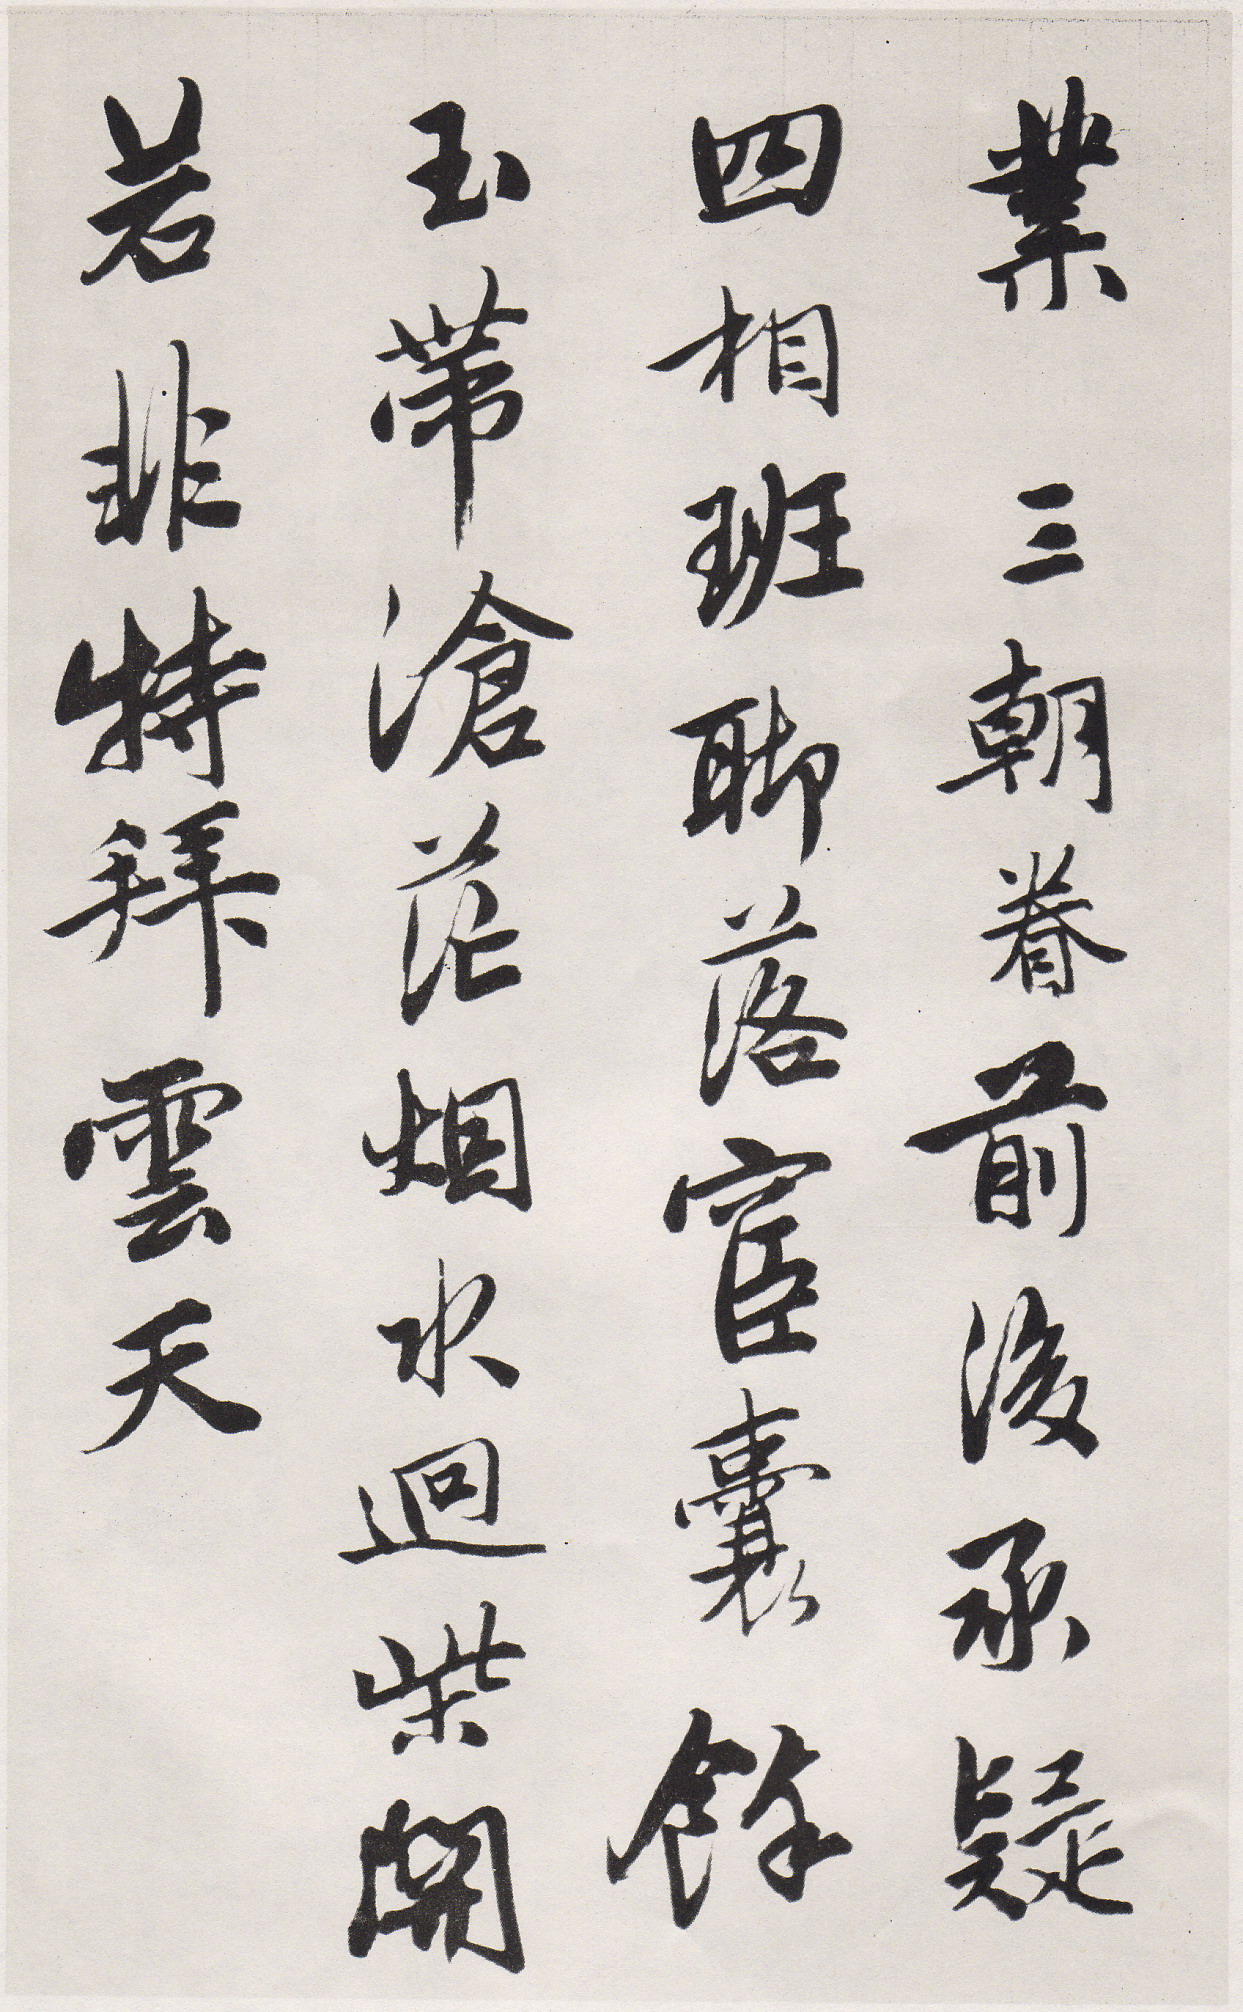 業　三朝眷前後承疑
四相班聊落宦囊餘
玉帶滄茫烟水迴柴關
若非特拜雲天